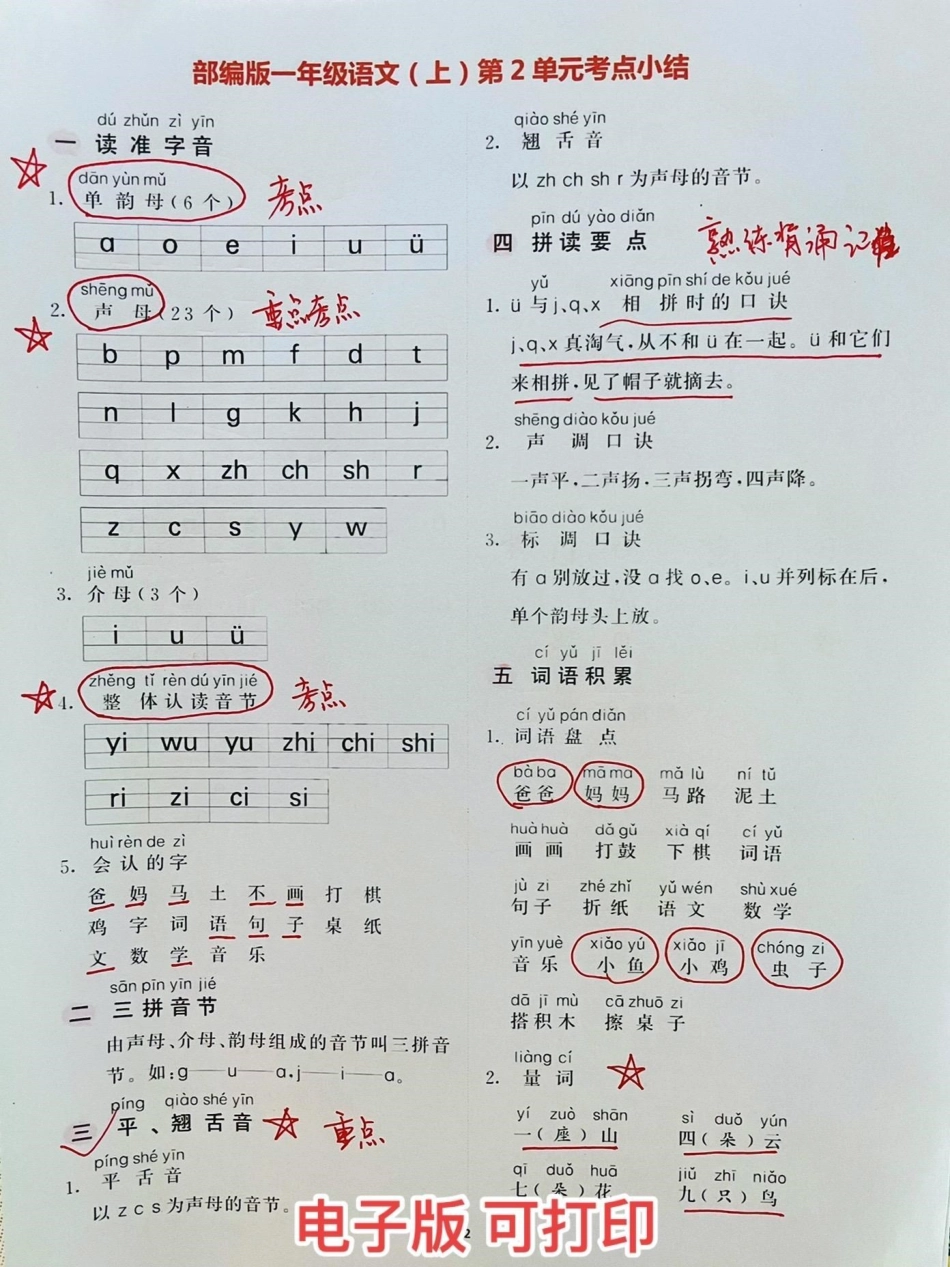 部编版一年级语文（上）第2单元考点小结
dú zhǔn zì yīn
一 读准字音
dān yùn mǔ
1. 单韵母（6个） 考点
ɑ o e i u ü
shēng mǔ
2. 声母（23个） 重点考点
b p m f d t
n l g k h j
q x zh ch sh r
z c s y w
jiè mǔ
3. 介母（3个）
i u ü
zhěng tǐ rèn dú yīn jié
4. 整体认读音节 考点
yi wu yu zhi chi shi
ri zi ci si
huì rèn de zì
5. 会认的字
爸 妈 马 土 不 画 打 棋
鸡 字 词 语 句 子 桌 纸
文 数 学 音 乐
sān pīn yīn jié
二 三拼音节
由声母、介母、韵母组成的音节叫三拼音
节。如：g——u——ɑ，j——i——ɑ。
píng qiào shé yīn
三 平、翘舌音 重点
píng shé yīn
1. 平舌音
以 z c s 为声母的音节。
qiào shé yīn
2. 翘舌音
以 zh ch sh r 为声母的音节。
pīn dú yào diǎn
四 拼读要点 熟练背诵记
yǔ xiāng pīn shí de kǒu jué
1. ü与j、q、x相拼时的口诀
j、q、x真淘气，从不和ü在一起。ü和它们
来相拼，见了帽子就摘去。
shēng diào kǒu jué
2. 声调口诀
一声平，二声扬，三声拐弯，四声降。
biāo diào kǒu jué
3. 标调口诀
有ɑ别放过，没ɑ找o、e。i、u并列标在后，
单个韵母头上放。
cí yǔ jī lěi
五 词语积累
cí yǔ pán diǎn
1. 词语盘点
bà bɑ mā mɑ mǎ lù ní tǔ
爸爸 妈妈 马路 泥土
huà huà dǎ gǔ xià qí cí yǔ
画画 打鼓 下棋 词语
jù zi zhé zhǐ yǔ wén shù xué
句子 折纸 语文 数学
yīn yuè xiǎo yú xiǎo jī chóng zi
音乐 小鱼 小鸡 虫子
dā jī mù cā zhuō zi
搭积木 擦桌子
liàng cí
2. 量词
yí zuò shān sì duǒ yún
一（座）山 四（朵）云
qī duǒ huā jiǔ zhī niǎo
七（朵）花 九（只）鸟
2
电子版 可打印